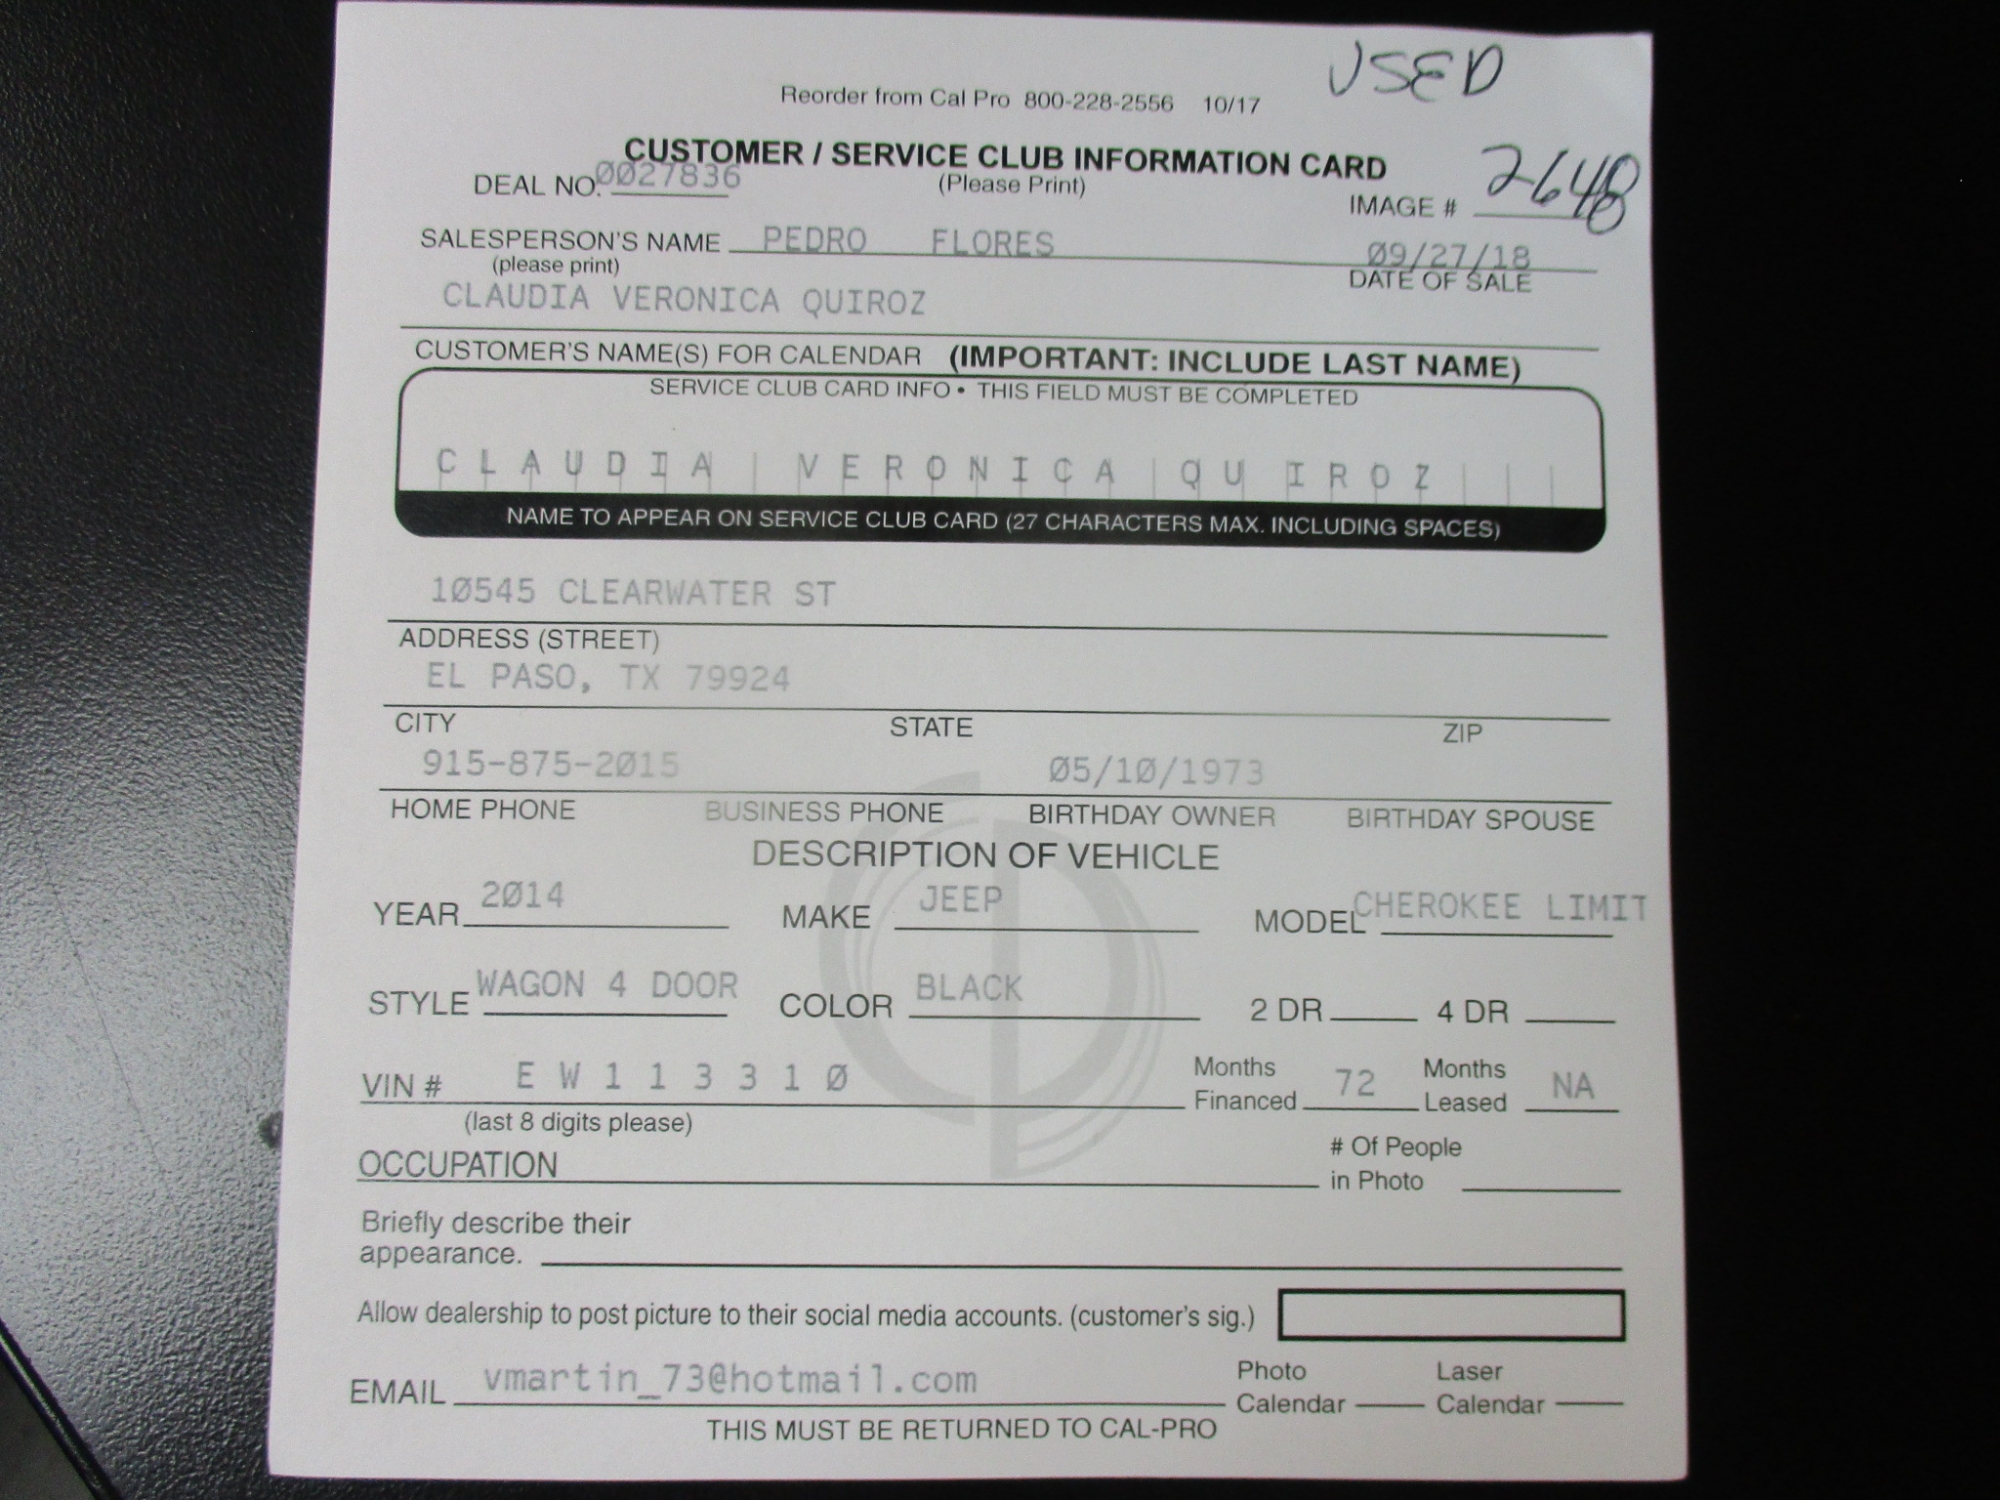 USED
Reorder from Cal Pro 800-228-2556 10/17
CUSTOMER / SERVICE CLUB INFORMATION CARD
DEAL NO. 0027836 (Please Print)
IMAGE # 2648
SALESPERSON'S NAME PEDRO FLORES 09/27/18
(please print) DATE OF SALE
CLAUDIA VERONICA QUIROZ
CUSTOMER'S NAME(S) FOR CALENDAR (IMPORTANT: INCLUDE LAST NAME)
SERVICE CLUB CARD INFO • THIS FIELD MUST BE COMPLETED
CLAUDIA VERONICA QUIROZ
NAME TO APPEAR ON SERVICE CLUB CARD (27 CHARACTERS MAX. INCLUDING SPACES)
10545 CLEARWATER ST
ADDRESS (STREET)
EL PASO, TX 79924
CITY STATE ZIP
915-875-2015 05/10/1973
HOME PHONE BUSINESS PHONE BIRTHDAY OWNER BIRTHDAY SPOUSE
DESCRIPTION OF VEHICLE
YEAR 2014 MAKE JEEP MODEL CHEROKEE LIMIT
STYLE WAGON 4 DOOR COLOR BLACK 2 DR 4 DR
VIN # E W 1 1 3 3 1 0 Months Financed 72 Months Leased NA
(last 8 digits please)
OCCUPATION # Of People in Photo
Briefly describe their
appearance.
Allow dealership to post picture to their social media accounts. (customer's sig.)
EMAIL vmartin_73@hotmail.com Photo Calendar Laser Calendar
THIS MUST BE RETURNED TO CAL-PRO